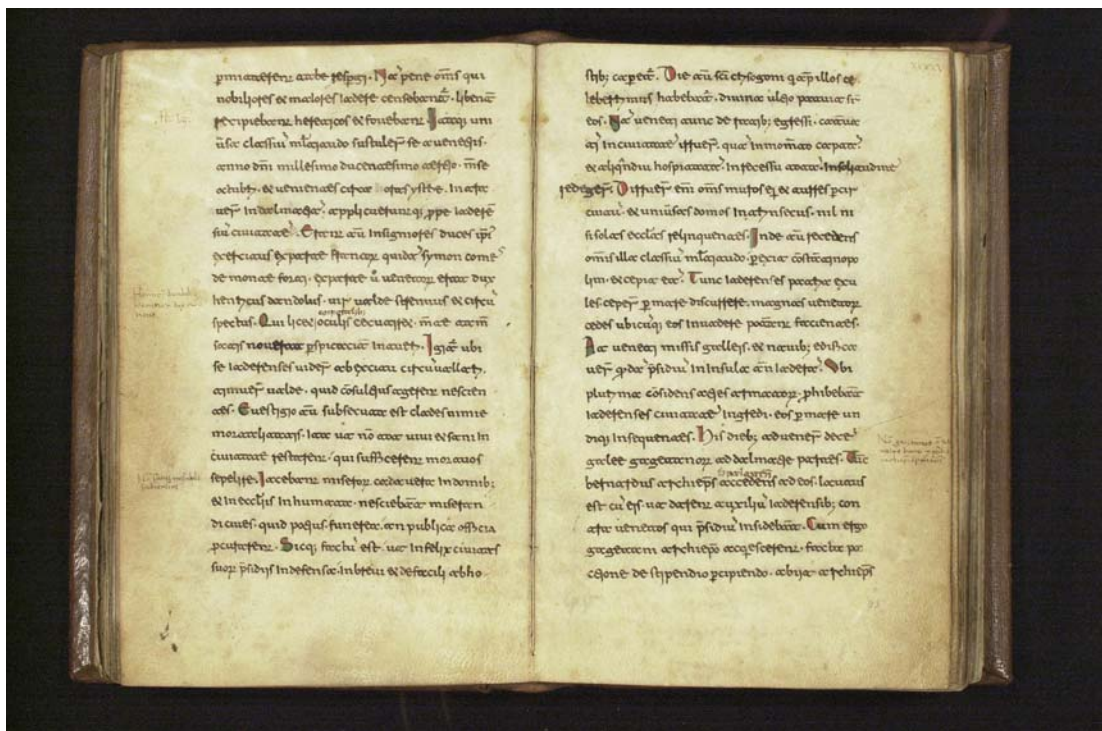 pmitteterent a labe respgi. Nā pene oms qui
nobiliores et maiores Iadere censebantᷣ. libent̄
recipiebant hereticos et fovebant. Itaq; uni
ūsa classiū mł̄titudo sustuler̄ se a venetiis.
anno dn̄i millesimo ducentesimo t̄tio. m̄se
octubri. et venientes circa oras ystrie. intra
ver̄ in dalmatiā. applicueruntq; ppe Iadeřē
siū civitatē. Erant aū insigniores duces ipsi᾽
exercitus ex parte francor̄ quidā symon come
de monte forti. ex parte ū venetor̄ erat dux
henricus dandolus. vir valde strenuus et circū
spectus. Qui licet corporalib; oculis cecutiret. m̄te tam̄
satis noverat pspicatia intueri. Igitᷣ ubi
se Iaderenses vider̄ ab exercitu circū vallati.
timuer̄ valde. quid consuli᾽ agerent nescien
tes. E vestigio aū subsecuta est clades nimie
mortalitatis. Ita ut nō tot vivi et sani in
civitate restarent. qui sufficerent mortuos
sepelire. Iacebant miseror̄ cadavera in domib;
et in ecclīis inhumata. nesciebant miseran
di cives. quid potius. funera. an publica officia
pcurarent. Sicq; factū est. ut infelix civitas
suor̄ psidiis indefensa. in brevi et de facili ab ho
stib; capta ē. Die aū sc̄i chrysogoni quā p illos ce
leberrimus habebatᷣ. divina ultio patrata ē in
eos. Nā veneti tunc de ratib; egressi. catervati
in civitatē irruer̄. quā in momto capta ē.
et aliqᷣndiu hospitata ē. in recessu tota ī solitudinē
redeger̄. Diruer̄ em̄ oms muros ei᾽ et turres p cir
cuitū. et univ̄sas domos intrinsecus. nil ni
si solas ecclīas relinquentes. Inde aū recedens
omīs illa classiū mł̄titudo. perexit constantinopo
lim. et cepit eā. Tunc Iaderenses patria exu
les ceper̄ p mare discurrere. magnas venetor̄
cedes ubicūq; eos invadere poterant facientes.
At veneti missis galleis. et navib; edifica
ver̄ qᷣdā psidiū in insula añ Iaderā. Ubi
plurima considens acies armator̄. phibebant
Iaderenses civitatē ingredi. eos p mare un
diq; insequentes. His dieb; advener̄ decē
galee gagetanor̄ ad dalmatie partes. Tūc
bernardus archiep̄s accedens ad eos. locutus
est cū eis. ut darent auxiliū Iaderensib; con
tra venetos qui psidiū insidebant. Cum ergo
gagetani archiep̄o acqᷣescerent. facta pa
ctione de stipendio pcipiendo. abiit archiep̄s